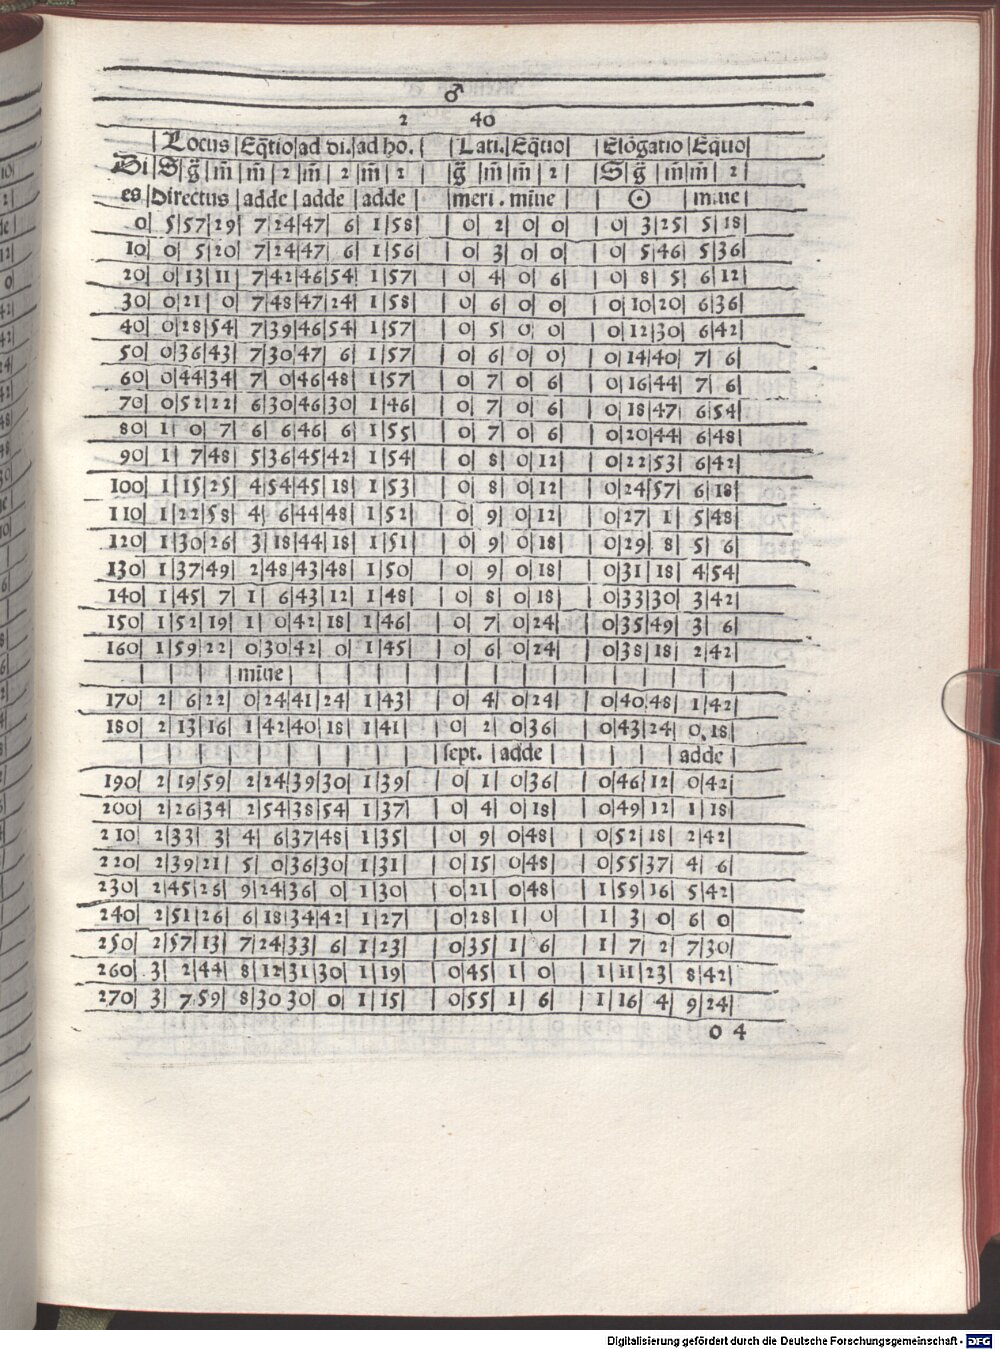 ♂
2 40
|Locus|Eq̃tio|ad di.|ad ho.| |Lati.|Eq̃tio| |Elõgatio|Eq̃tio|
Di|S|g̃|m̃|m̃|2|m̃|2|m̃|2| |g̃|m̃|m̃|2| |S|g̃|m̃|m̃|2|
es|Directus|adde|adde|adde| |meri.|mĩue| |☉|mĩue|
0|5|57|29|7|24|47|6|1|58| |0|2|0|0| |0|3|25|5|18|
10|0|5|20|7|24|47|6|1|56| |0|3|0|0| |0|5|46|5|36|
20|0|13|11|7|42|46|54|1|57| |0|4|0|6| |0|8|5|6|12|
30|0|21|0|7|48|47|24|1|58| |0|6|0|0| |0|10|20|6|36|
40|0|28|54|7|39|46|54|1|57| |0|5|0|0| |0|12|30|6|42|
50|0|36|43|7|30|47|6|1|57| |0|6|0|0| |0|14|40|7|6|
60|0|44|34|7|0|46|48|1|57| |0|7|0|6| |0|16|44|7|6|
70|0|52|22|6|30|46|30|1|46| |0|7|0|6| |0|18|47|6|54|
80|1|0|7|6|6|46|6|1|55| |0|7|0|6| |0|20|44|6|48|
90|1|7|48|5|36|45|42|1|54| |0|8|0|12| |0|22|53|6|42|
100|1|15|25|4|54|45|18|1|53| |0|8|0|12| |0|24|57|6|18|
110|1|22|58|4|6|44|48|1|52| |0|9|0|12| |0|27|1|5|48|
120|1|30|26|3|18|44|18|1|51| |0|9|0|18| |0|29|8|5|6|
130|1|37|49|2|48|43|48|1|50| |0|9|0|18| |0|31|18|4|54|
140|1|45|7|1|6|43|12|1|48| |0|8|0|18| |0|33|30|3|42|
150|1|52|19|1|0|42|18|1|46| |0|7|0|24| |0|35|49|3|6|
160|1|59|22|0|30|42|0|1|45| |0|6|0|24| |0|38|18|2|42|
|mĩue|
170|2|6|22|0|24|41|24|1|43| |0|4|0|24| |0|40|48|1|42|
180|2|13|16|1|42|40|18|1|41| |0|2|0|36| |0|43|24|0|18|
|sept.|adde| |adde|
190|2|19|59|2|24|39|30|1|39| |0|1|0|36| |0|46|12|0|42|
200|2|26|34|2|54|38|54|1|37| |0|4|0|18| |0|49|12|1|18|
210|2|33|3|4|6|37|48|1|35| |0|9|0|48| |0|52|18|2|42|
220|2|39|21|5|0|36|30|1|31| |0|15|0|48| |0|55|37|4|6|
230|2|45|26|9|24|36|0|1|30| |0|21|0|48| |1|59|16|5|42|
240|2|51|26|6|18|34|42|1|27| |0|28|1|0| |1|3|0|6|0
250|2|57|13|7|24|33|6|1|23| |0|35|1|6| |1|7|2|7|30|
260|3|2|44|8|12|31|30|1|19| |0|45|1|0| |1|11|23|8|42|
270|3|7|59|8|30|30|0|1|15| |0|55|1|6| |1|16|4|9|24|
o 4
Digitalisierung gefördert durch die Deutsche Forschungsgemeinschaft - DFG